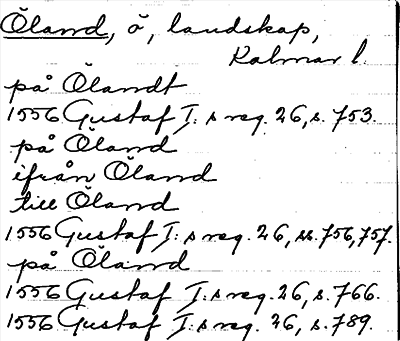 Öland, ö, landskap,
Kalmar l.
på Ölandt
1556 Gustaf I:s reg. 26, s. 753.
på Öland
ifrån Öland
till Öland
1556 Gustaf I:s reg. 26, ss. 756, 757.
på Öland
1556 Gustaf I:s reg. 26, s. 766.
1556 Gustaf I:s reg. 26, s. 789.